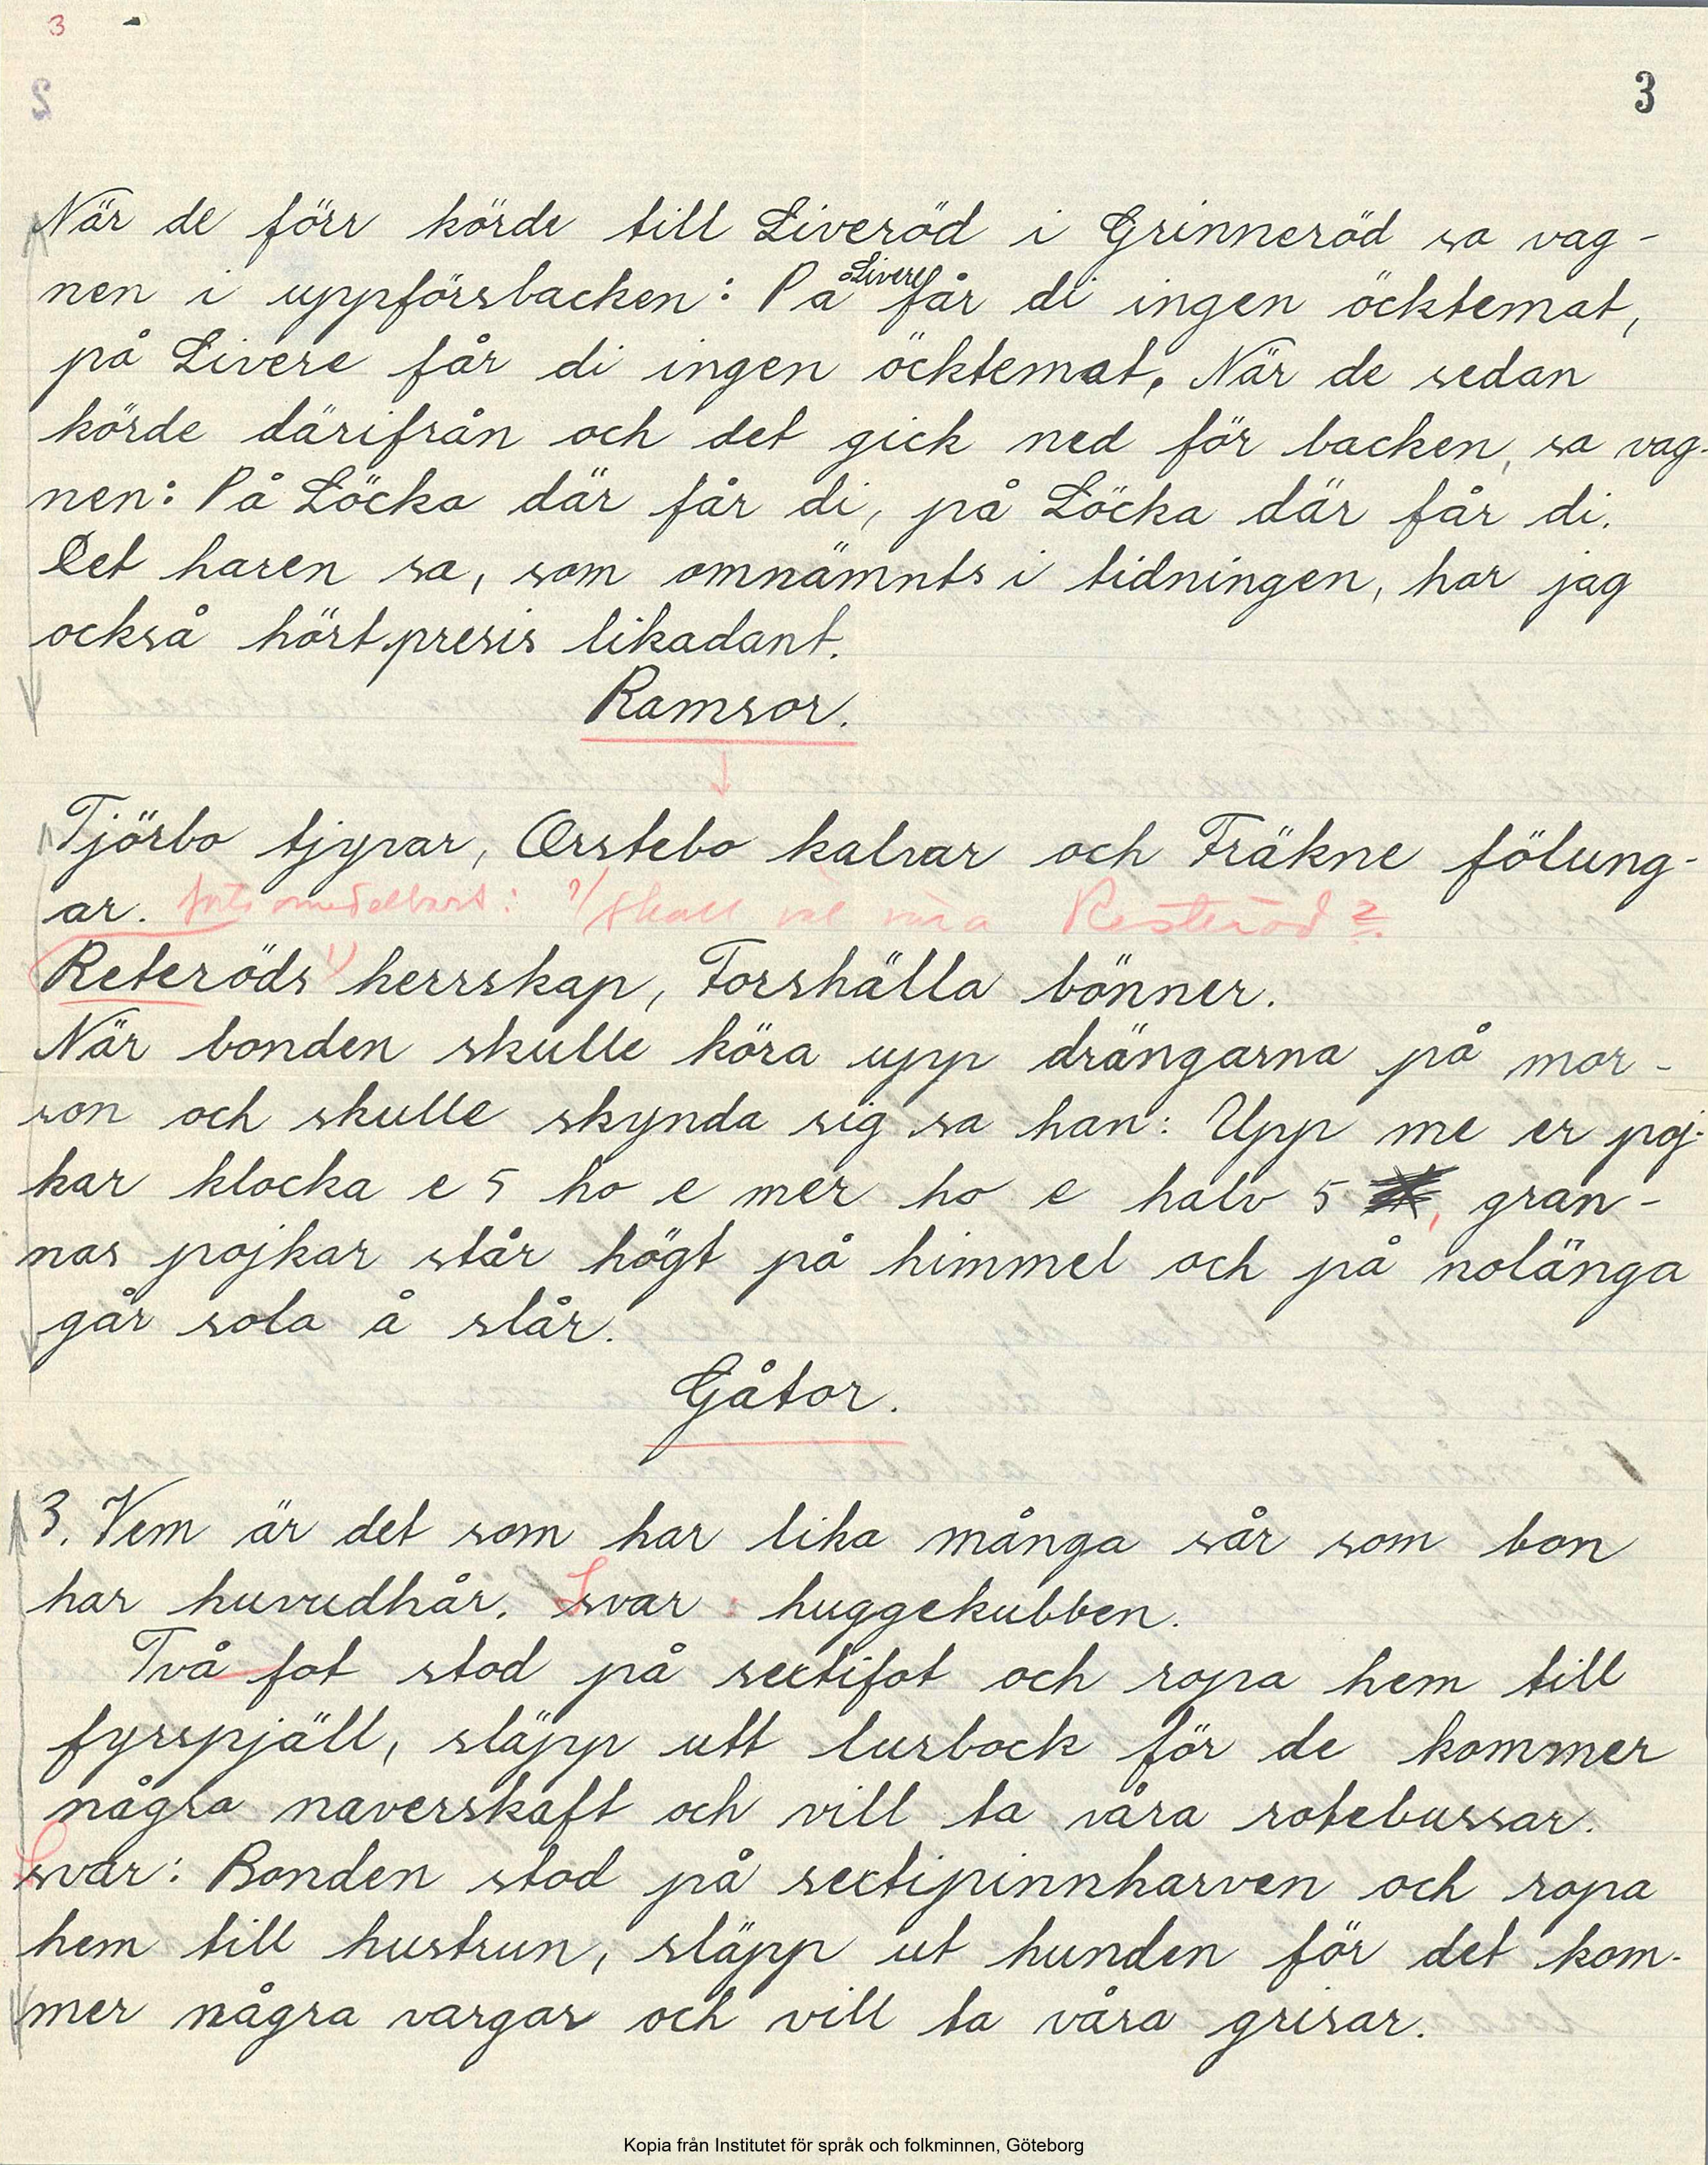 3
3
När de förr körde till Liveröd i Grinneröd sa vag-
nen i uppförsbacken: På Livere får di ingen öcktemat,
på Livere får di ingen öcktemat. När de sedan
körde därifrån och det gick ned för backen, sa vag-
nen: På Löcka där får di, på Löcka där får di.
Det haren sa, som omnämnts i tidningen, har jag
också hört presis likadant.
Ramsor.
Tjörbo tjyvar, Orstebo kalvar och Fräkne fölung-
ar. 1) skall väl vara Resteröd?
Reteröds 1) herrskap, Forshälla bönner.
När bonden skulle köra upp drängarna på mor-
son och skulle skynda sig sa han: Upp me er poj-
kar klocka e 5 ho e mer ho e halv 5, gran-
nas pojkar står högt på himmel och på nolänga
går sola å slår.
Gåtor.
3. Vem är det som har lika många sår som bon
har huvudhår. Svar: huggekubben.
Två fot stod på sextifot och ropa hem till
fyrspjäll, släpp utt lurbock för de kommer
några naverskaft och vill ta våra rotebussar.
Svar: Bonden stod på sextipinnharven och ropa
hem till hustrun, släpp ut hunden för det kom-
mer några vargar och vill ta våra grisar.
Kopia från Institutet för språk och folkminnen, Göteborg